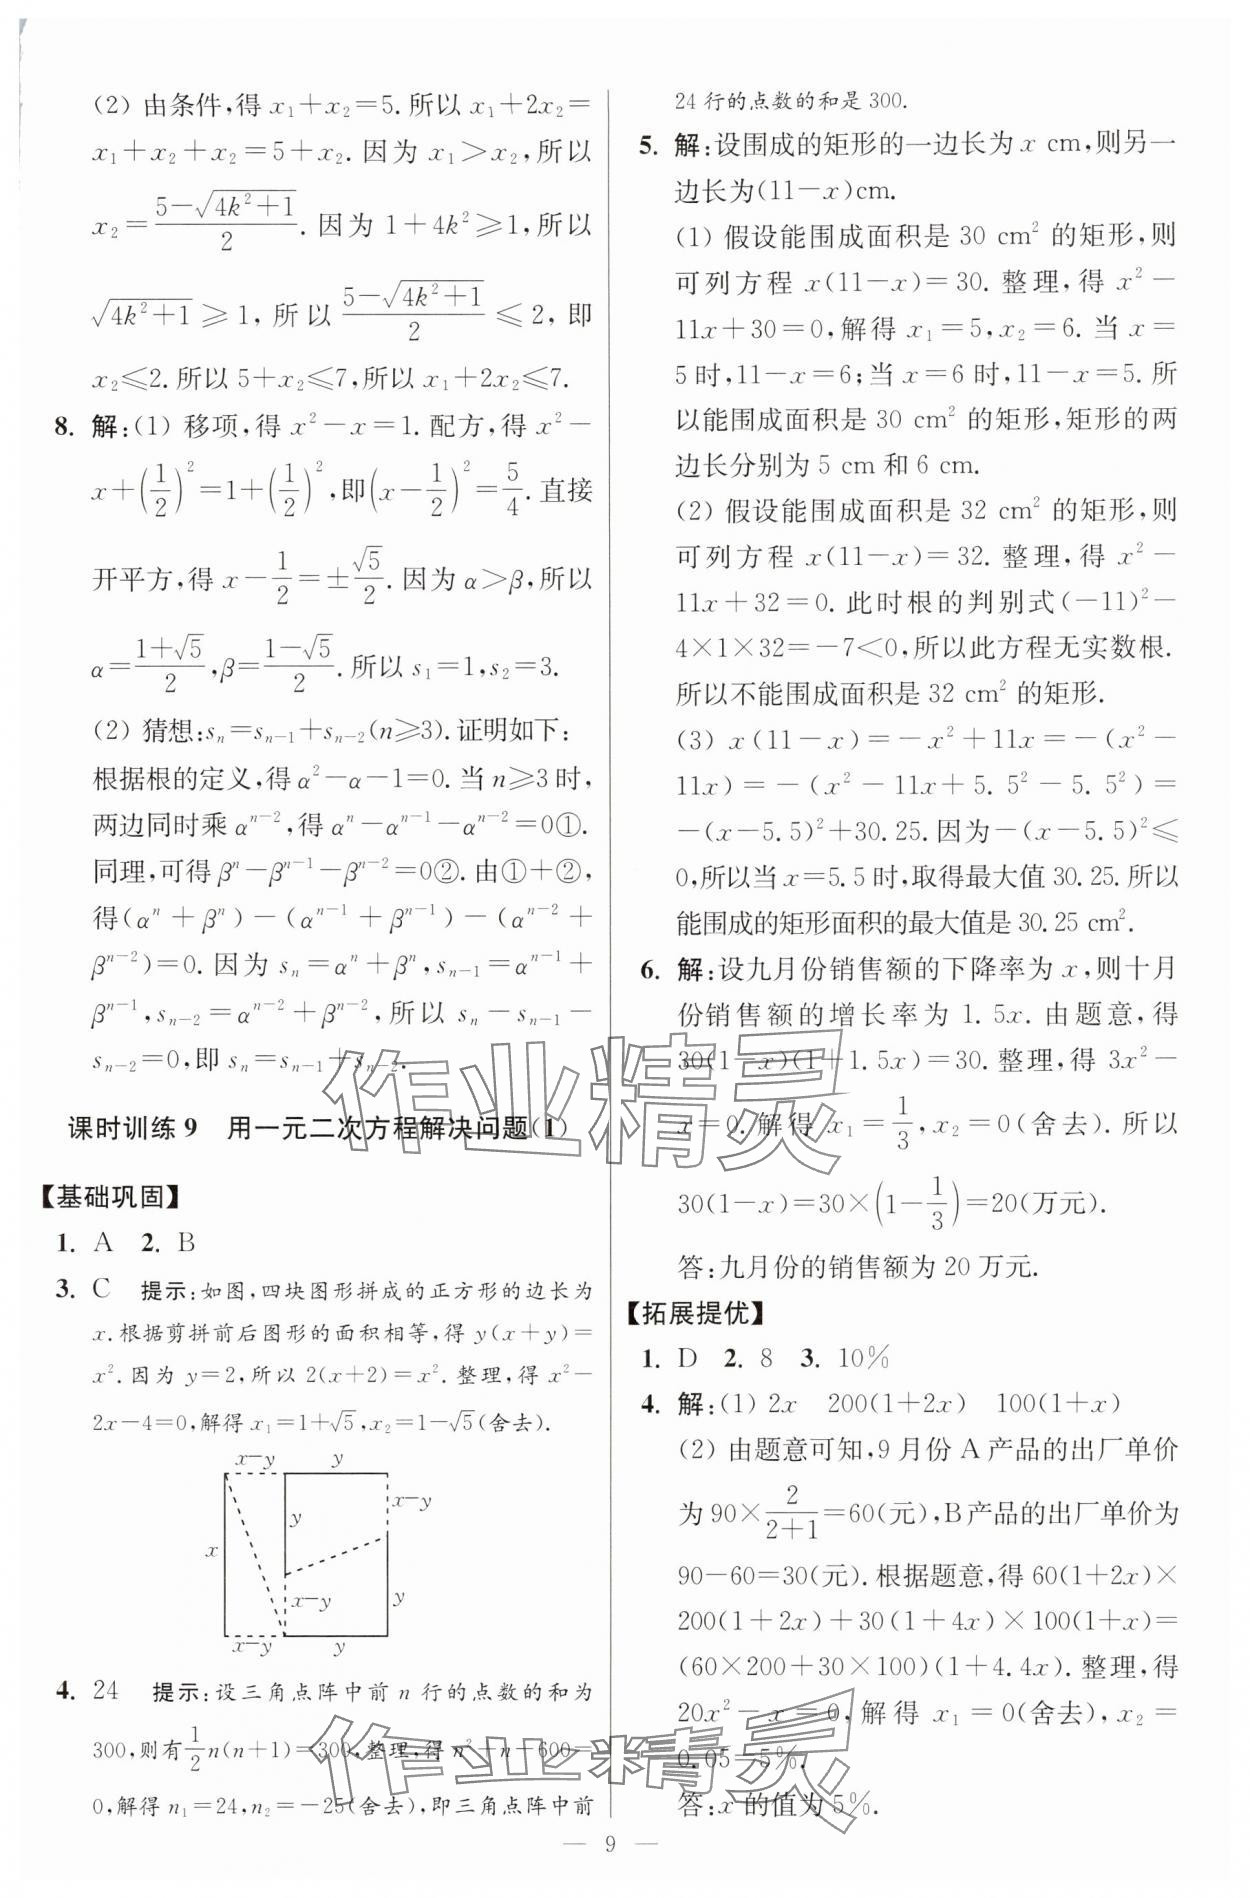 (2) 由条件,得 x₁+x₂=5. 所以 x₁+2x₂=
x₁+x₂+x₂=5+x₂. 因为 x₁>x₂,所以
x₂=(5-√(4k²+1))/2. 因为 1+4k²≥1,所以
√(4k²+1)≥1,所以 (5-√(4k²+1))/2≤2,即
x₂≤2. 所以 5+x₂≤7,所以 x₁+2x₂≤7.
8. 解:(1) 移项,得 x²-x=1. 配方,得 x²-
x+(1/2)²=1+(1/2)²,即(x-1/2)²=5/4. 直接
开平方,得 x-1/2=±√5/2. 因为 α>β,所以
α=(1+√5)/2,β=(1-√5)/2. 所以 s₁=1,s₂=3.
(2) 猜想:sₙ=sₙ₋₁+sₙ₋₂(n≥3). 证明如下:
根据根的定义,得 α²-α-1=0. 当 n≥3 时,
两边同时乘 αⁿ⁻²,得 αⁿ-αⁿ⁻¹-αⁿ⁻²=0①.
同理,可得 βⁿ-βⁿ⁻¹-βⁿ⁻²=0②. 由①+②,
得(αⁿ+βⁿ)-(αⁿ⁻¹+βⁿ⁻¹)-(αⁿ⁻²+
βⁿ⁻²)=0. 因为 sₙ=αⁿ+βⁿ,sₙ₋₁=αⁿ⁻¹+
βⁿ⁻¹,sₙ₋₂=αⁿ⁻²+βⁿ⁻²,所以 sₙ-sₙ₋₁-
sₙ₋₂=0,即 sₙ=sₙ₋₁+sₙ₋₂.
课时训练9 用一元二次方程解决问题(1)
【基础巩固】
1. A 2. B
3. C 提示:如图,四块图形拼成的正方形的边长为
x. 根据剪拼前后图形的面积相等,得 y(x+y)=
x². 因为 y=2,所以 2(x+2)=x². 整理,得 x²-
2x-4=0,解得 x₁=1+√5,x₂=1-√5(舍去).
x-y y
x-y
y
x
x-y y
x-y y
4. 24 提示:设三角点阵中前 n 行的点数的和为
300,则有1/2n(n+1)=300,整理,得 n²+n-600=
0,解得 n₁=24,n₂=-25(舍去),即三角点阵中前
24 行的点数的和是 300.
5. 解:设围成的矩形的一边长为 x cm,则另一
边长为(11-x)cm.
(1) 假设能围成面积是 30 cm² 的矩形,则
可列方程 x(11-x)=30. 整理,得 x²-
11x+30=0,解得 x₁=5,x₂=6. 当 x=
5 时,11-x=6;当 x=6 时,11-x=5. 所
以能围成面积是 30 cm² 的矩形,矩形的两
边长分别为 5 cm 和 6 cm.
(2) 假设能围成面积是 32 cm² 的矩形,则
可列方程 x(11-x)=32. 整理,得 x²-
11x+32=0. 此时根的判别式(-11)²-
4×1×32=-7<0,所以此方程无实数根.
所以不能围成面积是 32 cm² 的矩形.
(3) x(11-x)=-x²+11x=-(x²-
11x)=-(x²-11x+5.5²-5.5²)=
-(x-5.5)²+30.25. 因为-(x-5.5)²≤
0,所以当 x=5.5 时,取得最大值 30.25. 所以
能围成的矩形面积的最大值是 30.25 cm².
6. 解:设九月份销售额的下降率为 x,则十月
份销售额的增长率为 1.5x. 由题意,得
30(1-x)(1+1.5x)=30. 整理,得 3x²-
x=0. 解得 x₁=1/3,x₂=0(舍去). 所以
30(1-x)=30×(1-1/3)=20(万元).
答:九月份的销售额为 20 万元.
【拓展提优】
1. D 2. 8 3. 10%
4. 解:(1) 2x 200(1+2x) 100(1+x)
(2) 由题意可知,9 月份 A 产品的出厂单价
为 90×2/(2+1)=60(元),B 产品的出厂单价为
90-60=30(元). 根据题意,得 60(1+2x)×
200(1+2x)+30(1+4x)×100(1+x)=
(60×200+30×100)(1+4.4x). 整理,得
20x²-x=0,解得 x₁=0(舍去),x₂=
0.05=5%.
答:x 的值为 5%.
作业精灵
作业精灵
— 9 —